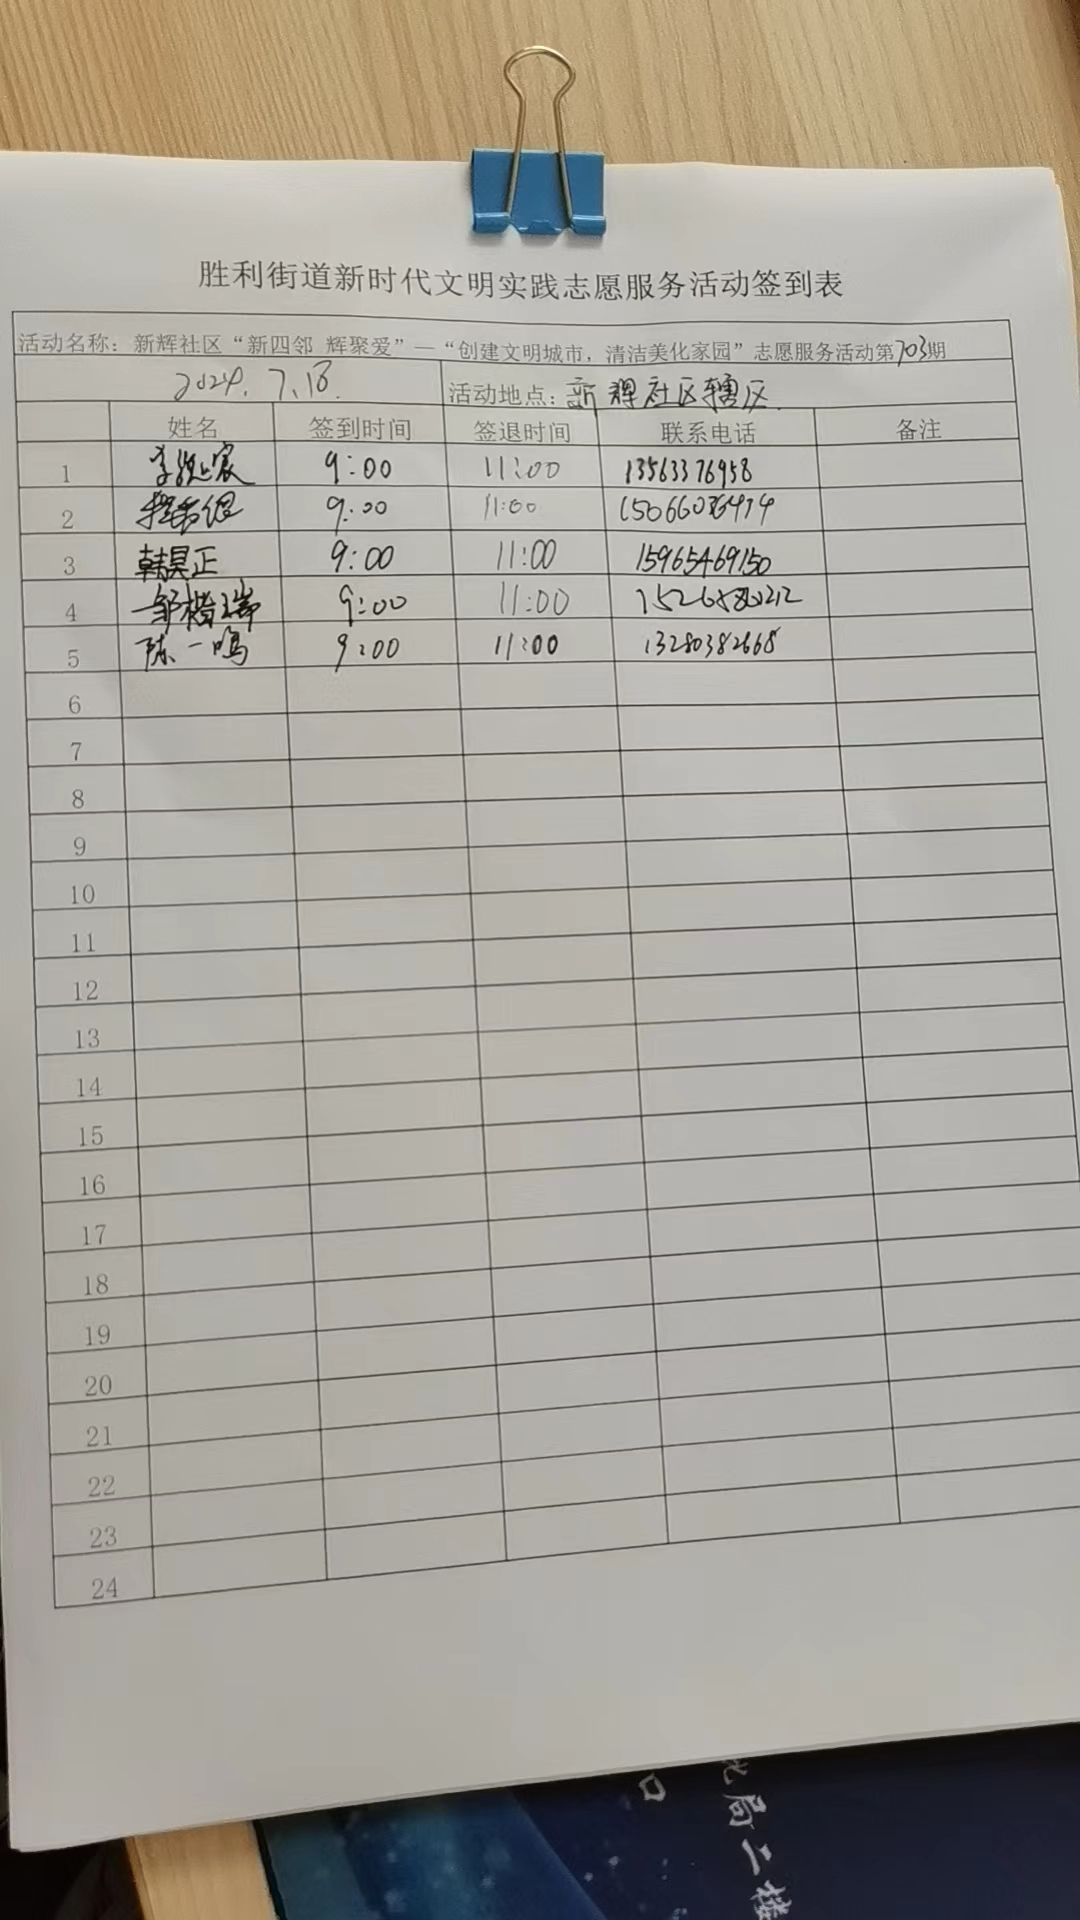 胜利街道新时代文明实践志愿服务活动签到表
活动名称：新辉社区“新四邻 辉聚爱”—“创建文明城市，清洁美化家园”志愿服务活动第703期
2024.7.18. 活动地点：新辉社区辖区.
姓名 签到时间 签退时间 联系电话 备注
1 9:00 11:00 13563376958
2 9:00 11:00
3 韩昊正 9:00 11:00 15965469150
4 邹楷瑞 9:00 11:00
5 陈一鸣 9:00 11:00 13280382668
6
7
8
9
10
11
12
13
14
15
16
17
18
19
20
21
22
23
24
局二楼
口